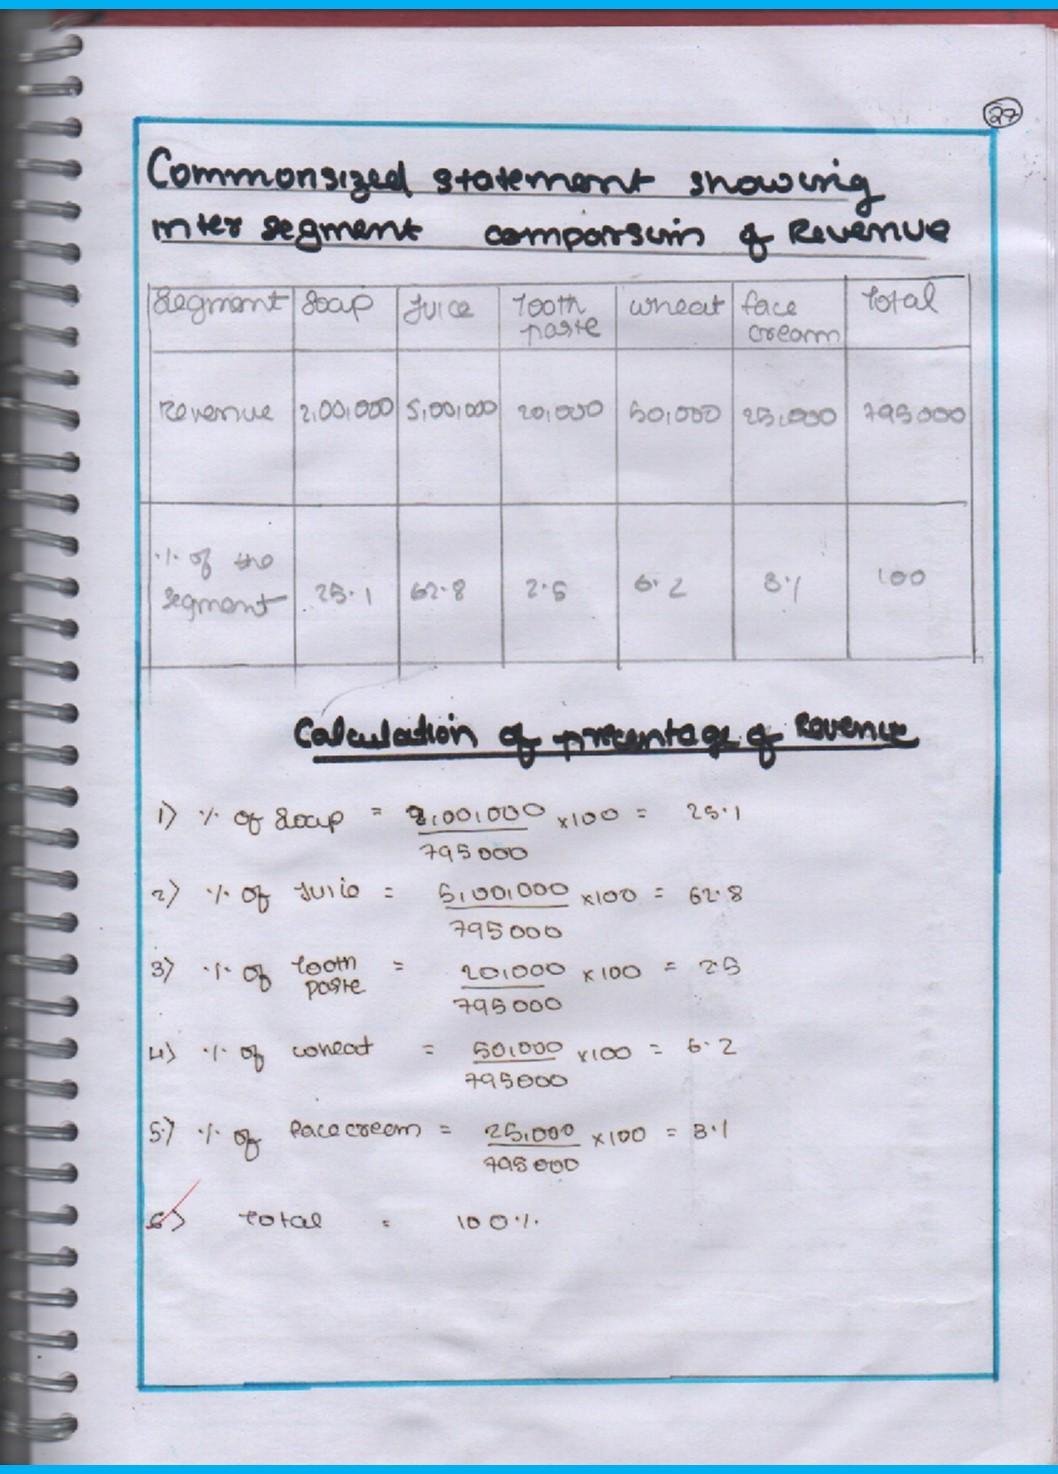 27
Commonsized statement showing
inter segment comparsuin of Revenue
Segment Soap Juice Tooth paste wheat face cream Total
Revenue 2,00,000 5,00,000 20,000 50,000 25,000 795000
% of the segment 25.1 62.8 2.5 6.2 3.1 100
Calculation of precentage of Revenue
1) % of Soap = 2,00,000 x100 = 25.1
795000
2) % of Juice = 5,00,000 x100 = 62.8
795000
3) % of Tooth paste = 20,000 x100 = 2.5
795000
4) % of wheat = 50,000 x100 = 6.2
795000
5) % of Face cream = 25,000 x100 = 3.1
795000
6) Total = 100%